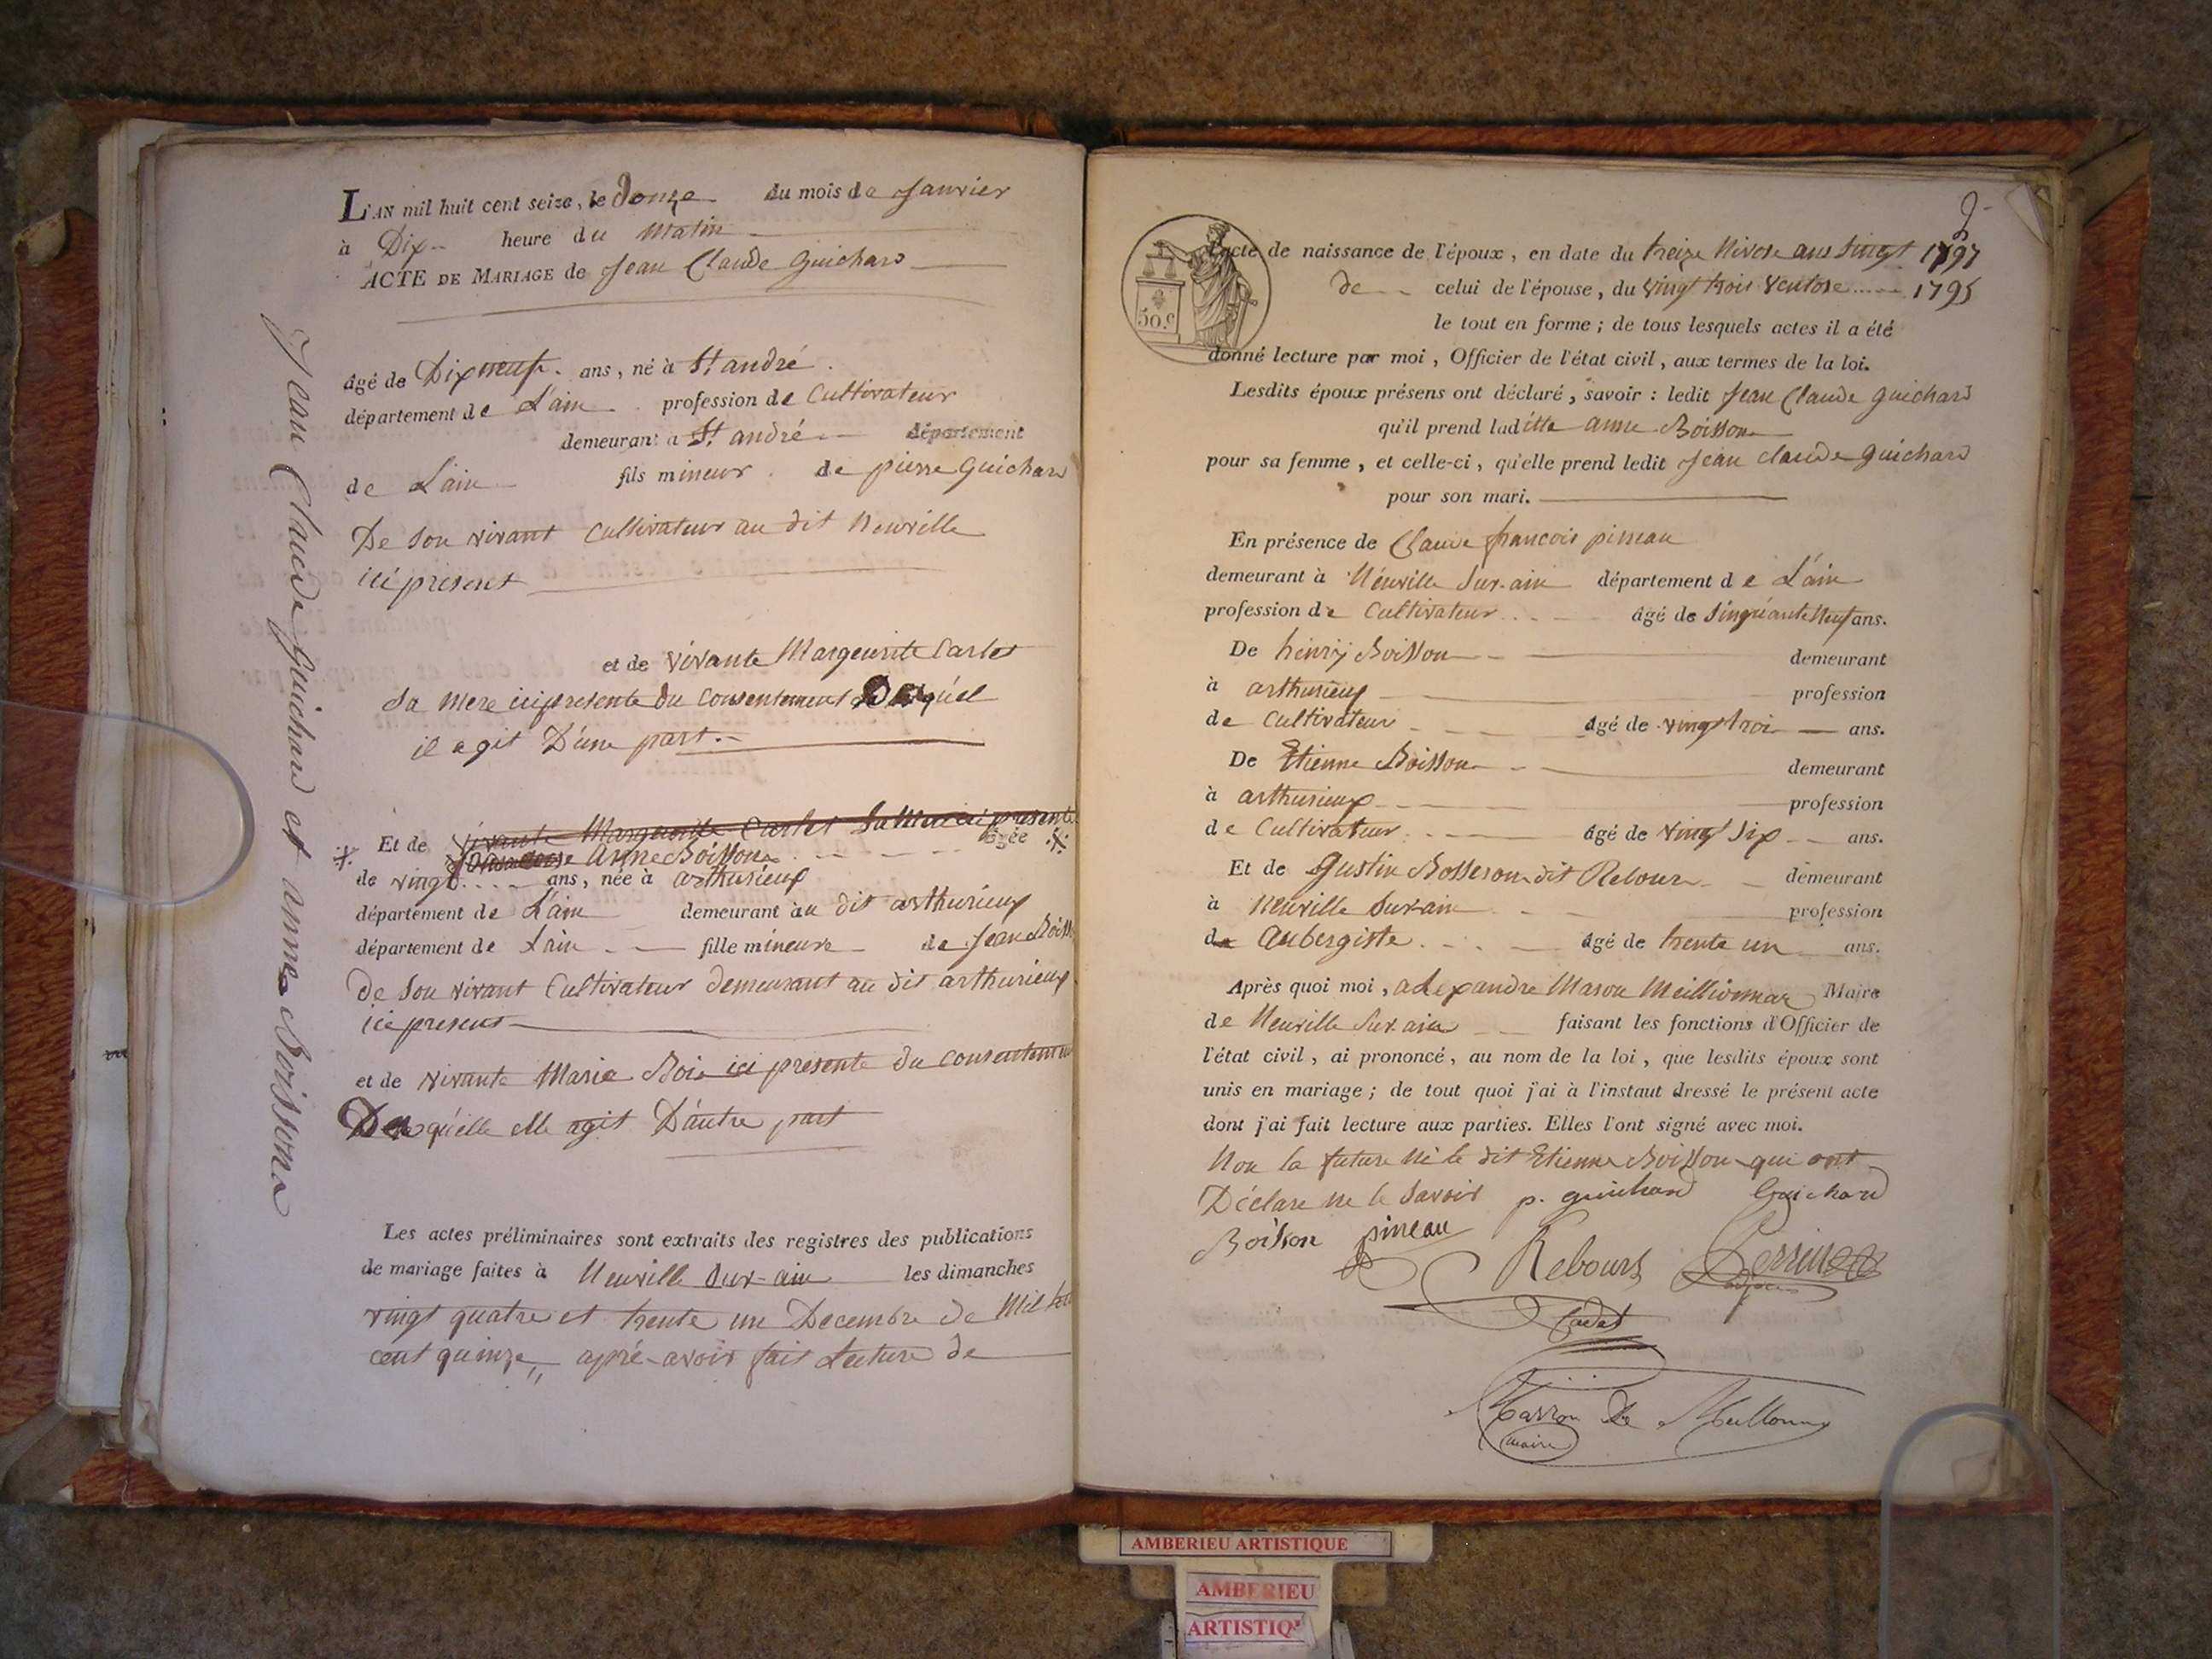 L'AN mil huit cent seize, le Douze du mois de Janvier
à Dix heure du Matin
ACTE DE MARIAGE de Jean Claude Guichard
âgé de Dix neuf ans, né à St andré
département de L'ain profession de Cultivateur
demeurant à St andré département
de L'ain fils mineur de pierre Guichard
De Son vivant Cultivateur au dit Neuville
ici present
et de vivante Marguerite Carlet
Sa Mere ici presente du Consentement Desquel
il agit D'une part.
Et de vivante Marguerite Carlet Sa Mere ici presente
Anne Boisson âgée
de vingt ans, née à arthurieux
département de L'ain demeurant au dit arthurieux
département de L'ain fille mineure de Jean Boiss
De Son vivant Cultivateur demeurant au dit arthurieux
ici present
et de vivante Marie Bois ici presente du Consentement
Desquelle elle agit D'autre part
Les actes préliminaires sont extraits des registres des publications
de mariage faites à Neuville Sur-ain les dimanches
vingt quatre et trente un Decembre de Mil huit
cent quinze,, apré avoir fait Lecture de
Jean Claude Guichard et anne Boissone
2
50.c
L'acte de naissance de l'époux, en date du treize Nivose 1797
de celui de l'épouse, du vingt trois Ventose 1795
le tout en forme ; de tous lesquels actes il a été
donné lecture par moi, Officier de l'état civil, aux termes de la loi.
Lesdits époux présens ont déclaré, savoir : ledit Jean Claude Guichard
qu'il prend laditte anne Boisson
pour sa femme, et celle-ci, qu'elle prend ledit Jean Claude Guichard
pour son mari.
En présence de Claude francois pineau
demeurant à Neuville Sur-ain département de L'ain
profession de Cultivateur âgé de Sinquante Neuf ans.
De henry Boisson demeurant
à arthurieux profession
de Cultivateur âgé de vingt troi ans.
De Etienne Boisson demeurant
à arthurieux profession
de Cultivateur âgé de vingt Six ans.
Et de Gustin Bosseron dit Rebour demeurant
à Neuville Sur-ain profession
de Aubergiste âgé de trente un ans.
Après quoi moi, alexandre Mason Meillionnar Maire
de Neuville Sur ain faisant les fonctions d'Officier de
l'état civil, ai prononcé, au nom de la loi, que lesdits époux sont
unis en mariage ; de tout quoi j'ai à l'instant dressé le présent acte
dont j'ai fait lecture aux parties. Elles l'ont signé avec moi.
Non la future Ni le dit Etienne Boisson qui ont
Déclare ne le Savoir p. guichard Guichard
Boisson pineau Rebours
Cadet
Marron De
maire
AMBERIEU ARTISTIQUE
AMBERIEU
ARTISTIQ